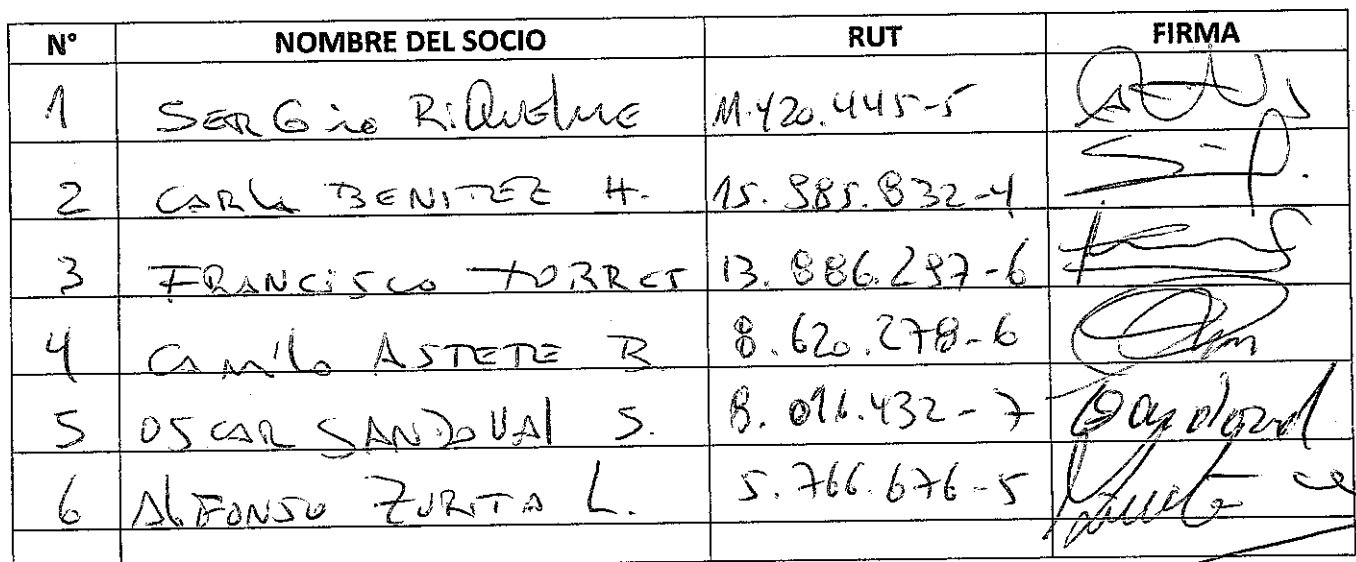 N° NOMBRE DEL SOCIO RUT FIRMA
1 SERGio RiQuelme 11.420.445-5
2 CARLA BENITEZ H. 15.985.832-4
3 FRANCISCO TORRES 13.886.297-6
4 Camilo ASTETE B 8.620.278-6
5 OSCAR SANDOVAl S. 8.016.432-7 Sandoval
6 AlFONSO ZURITA L. 5.766.676-5